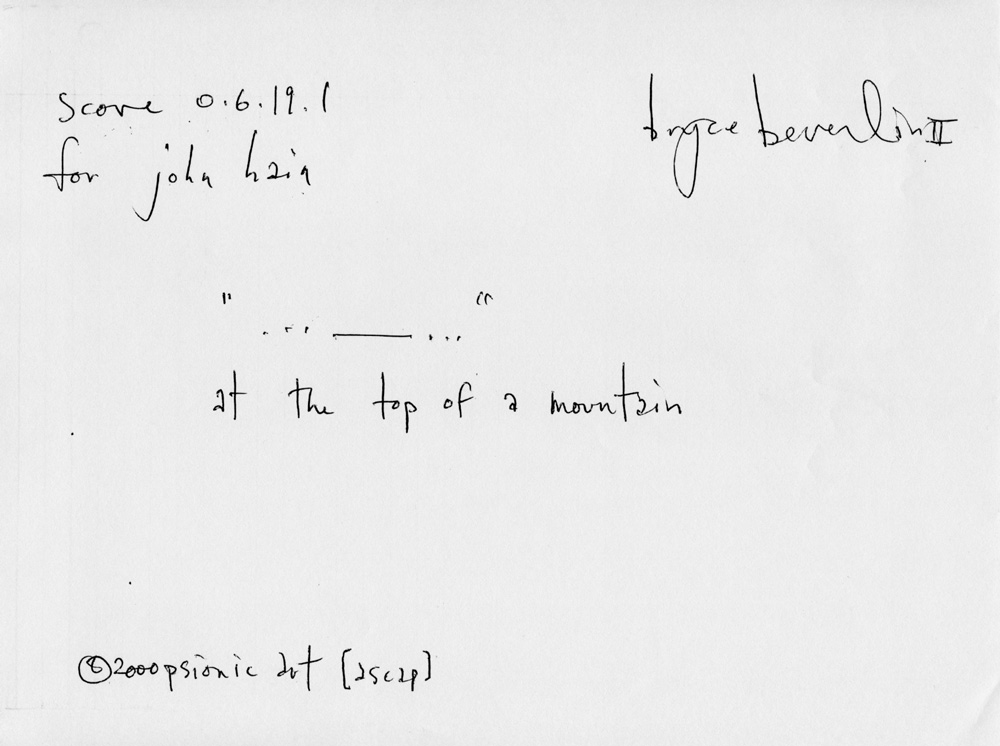 score 0.6.19.1
bryce beverlin II
for john hain
" ... ___ ... "
at the top of a mountain
© 2000 psionic dot [ascap]